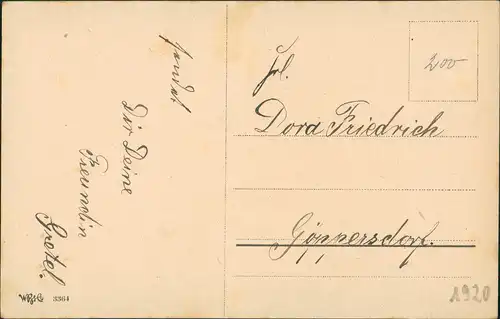 sendet
Dir Deine
Freundin
Gretel.
Frl.
Dora Friedrich
Göppersdorf.
200
3364
1920